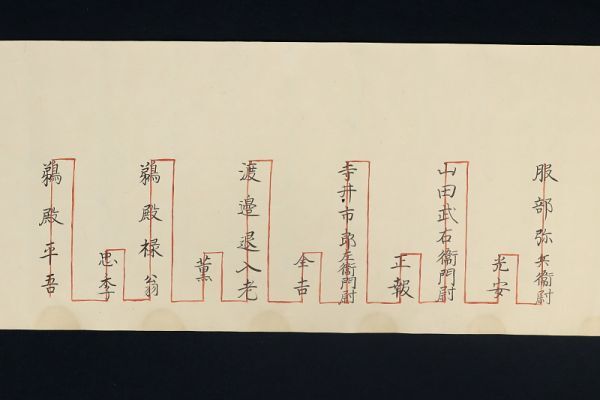 服部弥兵衞尉
光安
山田武右衞門尉
正報
寺井市郎左衞門尉
全吉
渡邉退入老
薫
鵜殿様翁
忠季
鵜殿平吾